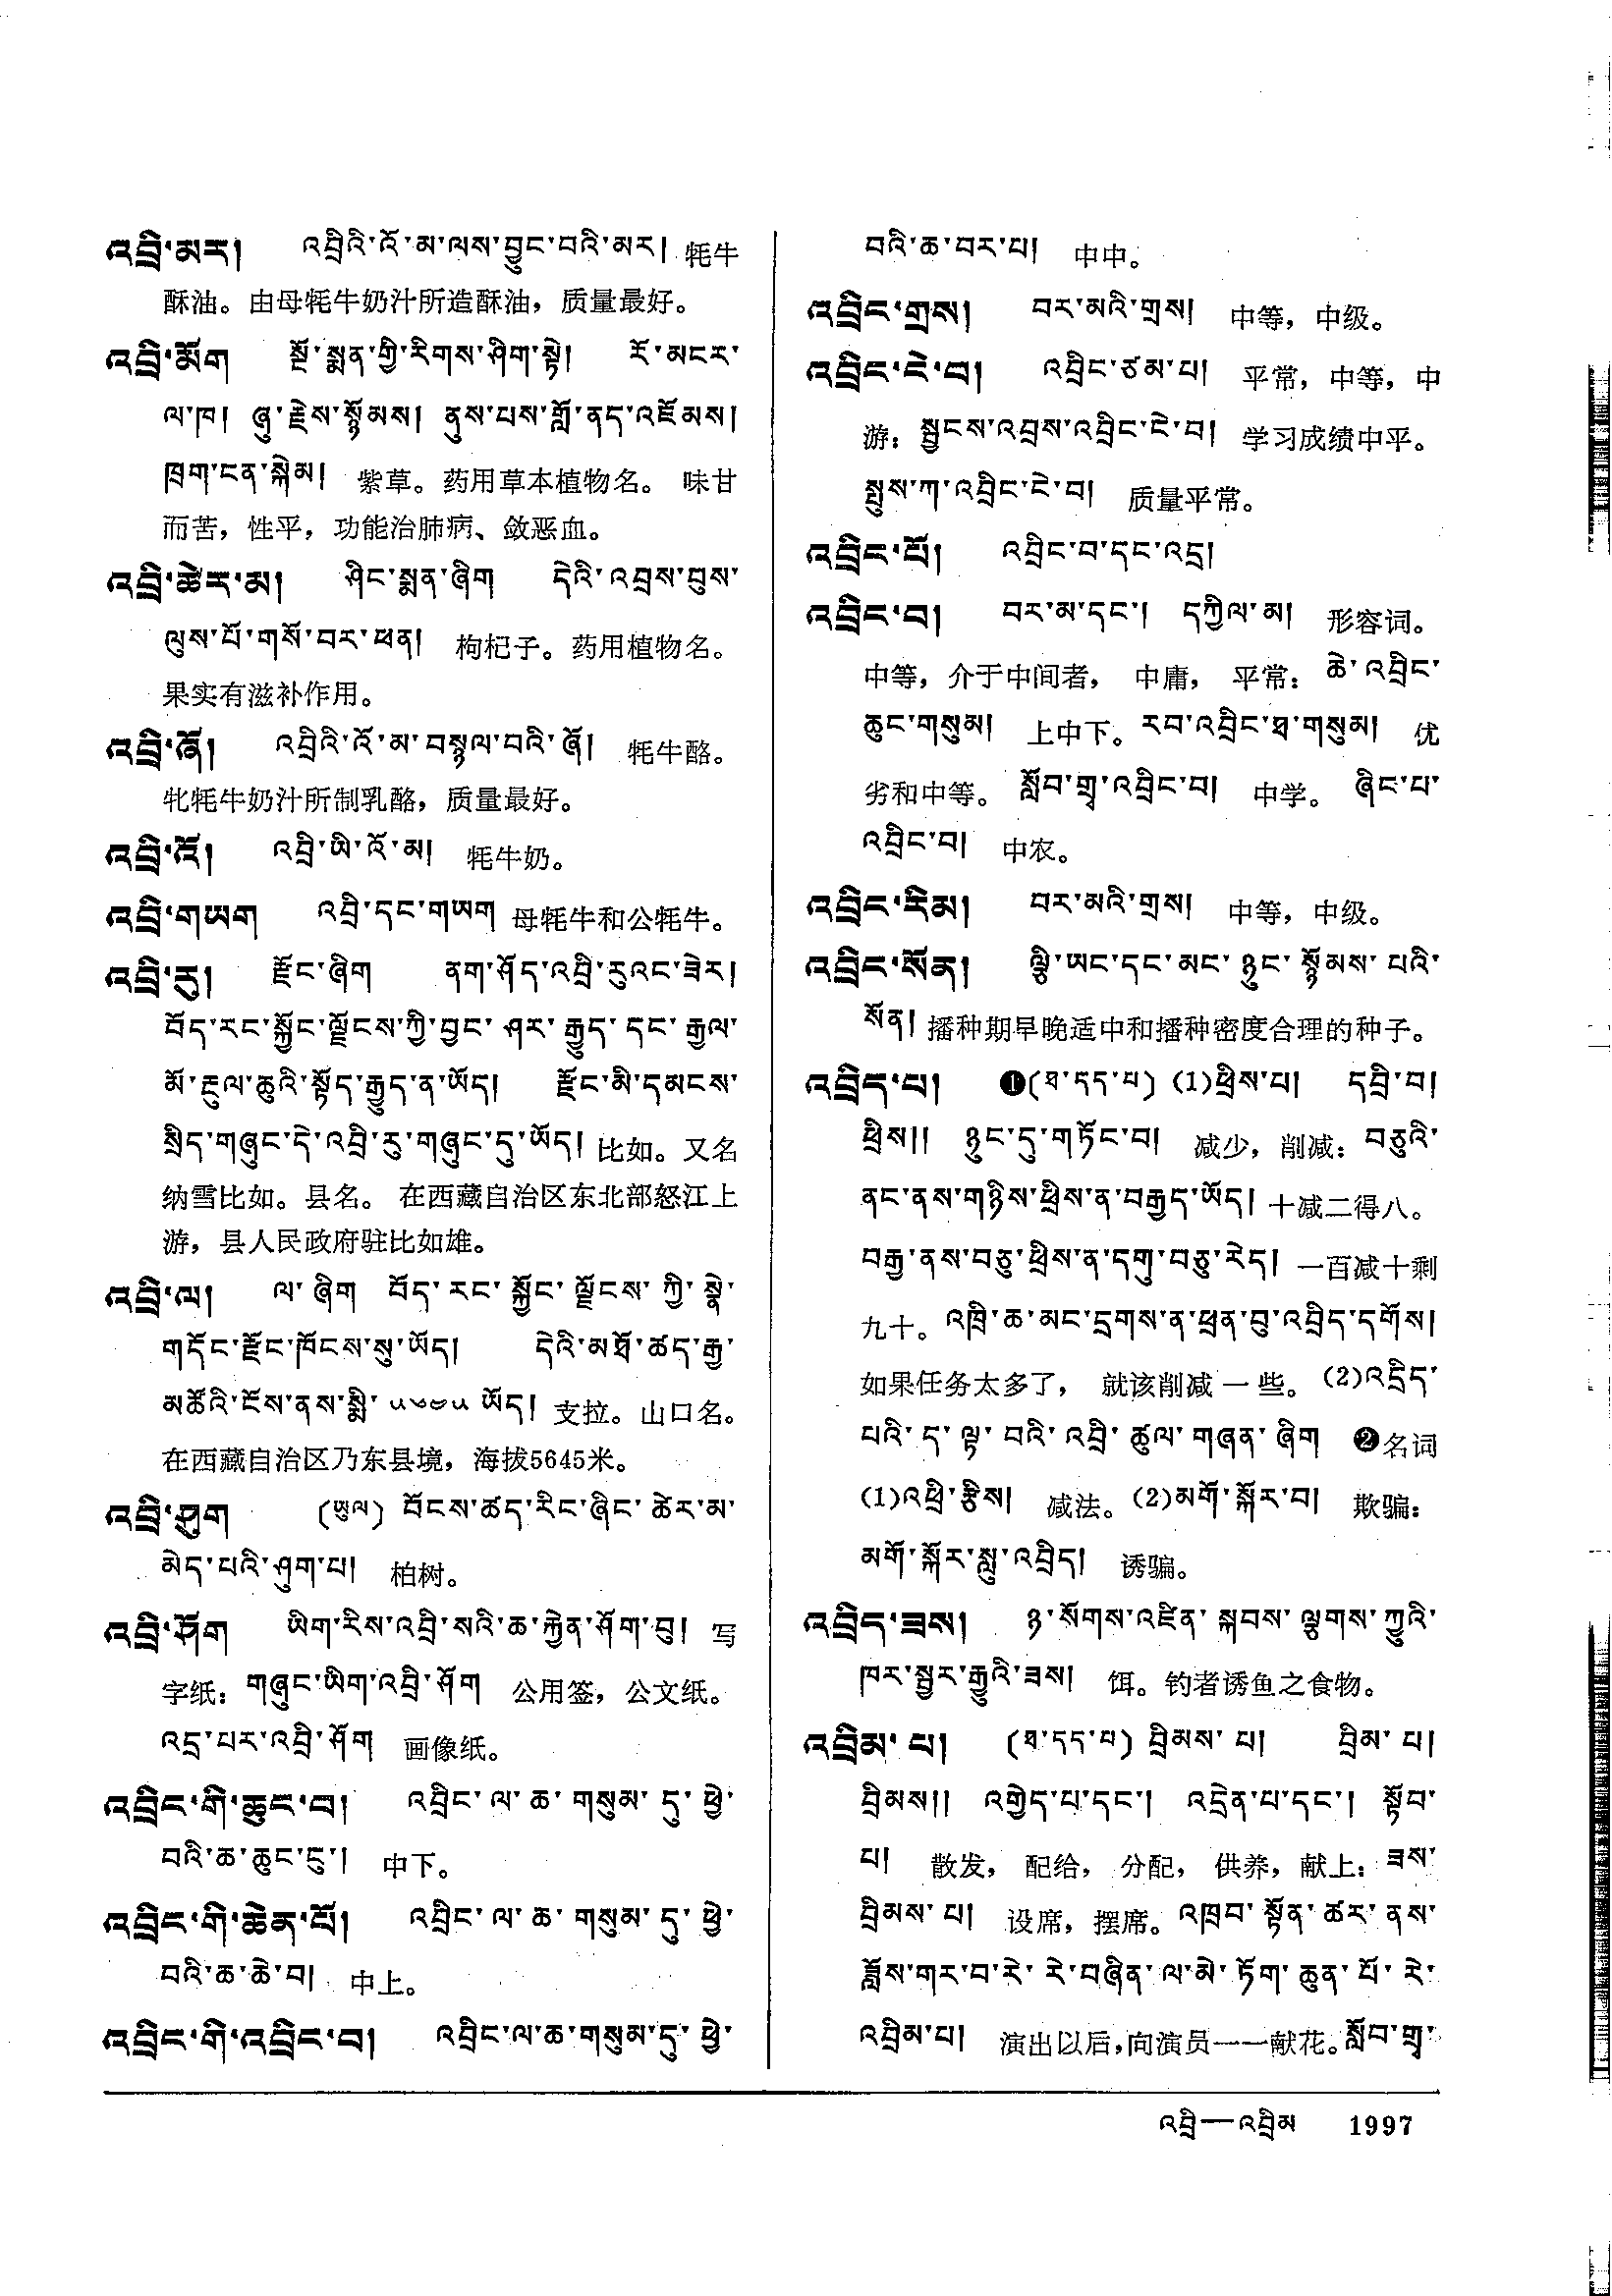 འབྲི་མར། འབྲིའི་འོ་མ་ལས་བྱུང་བའི་མར། 牦牛
酥油。由母牦牛奶汁所造酥油，质量最好。
འབྲི་མོག སྔོ་སྨན་གྱི་རིགས་ཤིག་སྟེ། རོ་མངར་
ལ་ཁ། ཞུ་རྗེས་སྙོམས། ནུས་པས་གློ་ནད་འཇོམས།
ཁྲག་ངན་སྐེམ། 紫草。药用草本植物名。 味甘
而苦，性平，功能治肺病、敛恶血。
འབྲི་ཚེར་མ། ཤིང་སྨན་ཞིག དེའི་འབྲས་བུས་
ལུས་པོ་གསོ་བར་ཕན། 枸杞子。药用植物名。
果实有滋补作用。
འབྲི་ཞོ། འབྲིའི་འོ་མ་བསྙལ་བའི་ཞོ། 牦牛酪。
牝牦牛奶汁所制乳酪，质量最好。
འབྲི་འོ། འབྲི་ཡི་འོ་མ། 牦牛奶。
འབྲི་གཡག འབྲི་དང་གཡག 母牦牛和公牦牛。
འབྲི་རུ། རྫོང་ཞིག ནག་ཤོད་འབྲི་རུའང་ཟེར།
བོད་རང་སྐྱོང་ལྗོངས་ཀྱི་བྱང་ཤར་རྒྱུད་དང་རྒྱལ་
མོ་རྔུལ་ཆུའི་སྟོད་རྒྱུད་ན་ཡོད། རྫོང་མི་དམངས་
སྲིད་གཞུང་དེ་འབྲི་རུ་གཞུང་དུ་ཡོད། 比如。又名
纳雪比如。县名。 在西藏自治区东北部怒江上
游，县人民政府驻比如雄。
འབྲི་ལ། ལ་ཞིག བོད་རང་སྐྱོང་ལྗོངས་ཀྱི་སྣེ་
གདོང་རྫོང་ཁོངས་སུ་ཡོད། དེའི་མཐོ་ཚད་རྒྱ་
མཚོའི་ངོས་ནས་སྨི་༥༦༤༥ ཡོད། 支拉。山口名。
在西藏自治区乃东县境，海拔5645米。
འབྲི་ཤུག (ཡུལ) བོངས་ཚད་རིང་ཞིང་ཚེར་མ་
མེད་པའི་ཤུག་པ། 柏树。
འབྲི་ཤོག ཡིག་རིས་འབྲི་སའི་ཆ་རྐྱེན་ཤོག་བུ། 写
字纸：གཞུང་ཡིག་འབྲི་ཤོག 公用签，公文纸。
འདྲ་པར་འབྲི་ཤོག 画像纸。
འབྲིང་གི་ཆུང་བ། འབྲིང་ལ་ཆ་གསུམ་དུ་ཕྱེ་
བའི་ཆ་ཆུང་ངུ་། 中下。
འབྲིང་གི་ཆེན་པོ། འབྲིང་ལ་ཆ་གསུམ་དུ་ཕྱེ་
བའི་ཆ་ཆེ་བ། 中上。
འབྲིང་གི་འབྲིང་བ། འབྲིང་ལ་ཆ་གསུམ་དུ་ཕྱེ་
བའི་ཆ་བར་པ། 中中。
འབྲིང་གྲས། བར་མའི་གྲས། 中等，中级。
འབྲིང་ངེ་བ། འབྲིང་ཙམ་པ། 平常，中等，中
游：སྦྱངས་འབྲས་འབྲིང་ངེ་བ། 学习成绩中平。
སྤུས་ཀ་འབྲིང་ངེ་བ། 质量平常。
འབྲིང་པོ། འབྲིང་བ་དང་འདྲ།
འབྲིང་བ། བར་མ་དང་། དཀྱིལ་མ། 形容词。
中等，介于中间者， 中庸， 平常：ཆེ་འབྲིང་
ཆུང་གསུམ། 上中下。རབ་འབྲིང་ཐ་གསུམ། 优
劣和中等。སློབ་གྲྭ་འབྲིང་བ། 中学。 ཞིང་པ་
འབྲིང་བ། 中农。
འབྲིང་རིམ། བར་མའི་གྲས། 中等，中级。
འབྲིང་སོན། ལྕི་ཡང་དང་མང་ཉུང་སྙོམས་པའི་
སོན། 播种期早晚适中和播种密度合理的种子。
འབྲིད་པ། ❶(ཐ་དད་པ) (1)ཕྲིས་པ། དབྲི་བ།
ཕྲིས།། ཉུང་དུ་གཏོང་བ། 减少，削减：བཅུའི་
ནང་ནས་གཉིས་ཕྲིས་ན་བརྒྱད་ཡོད། 十减二得八。
བརྒྱ་ནས་བཅུ་ཕྲིས་ན་དགུ་བཅུ་རེད། 一百减十剩
九十。འཁྲི་ཆ་མང་དྲགས་ན་ཕྲན་བུ་འབྲིད་དགོས།
如果任务太多了， 就该削减一些。(2)འདྲིད་
པའི་ད་ལྟ་བའི་འབྲི་ཚུལ་གཞན་ཞིག ❷名词
(1)འཕྲི་རྩིས། 减法。(2)མགོ་སྐོར་བ། 欺骗：
མགོ་སྐོར་སླུ་འབྲིད། 诱骗。
འབྲིད་ཟས། ཉ་སོགས་འཛིན་སྐབས་ལྕགས་ཀྱུའི་
ཁར་སྦྱར་རྒྱུའི་ཟས། 饵。钓者诱鱼之食物。
འབྲིམ་པ། (ཐ་དད་པ) བྲིམས་པ། བྲིམ་པ།
བྲིམས།། འགྱེད་པ་དང་། འདྲེན་པ་དང་། སྟོབ་
པ། 散发， 配给， 分配， 供养，献上：ཟས་
བྲིམས་པ། 设席，摆席。འཁྲབ་སྟོན་ཚར་ནས་
ཟློས་གར་བ་རེ་རེ་བཞིན་ལ་མེ་ཏོག་ཆུན་པོ་རེ་
འབྲིམ་པ། 演出以后,向演员一一献花。སློབ་གྲྭ་
འབྲི—འབྲིམ 1997